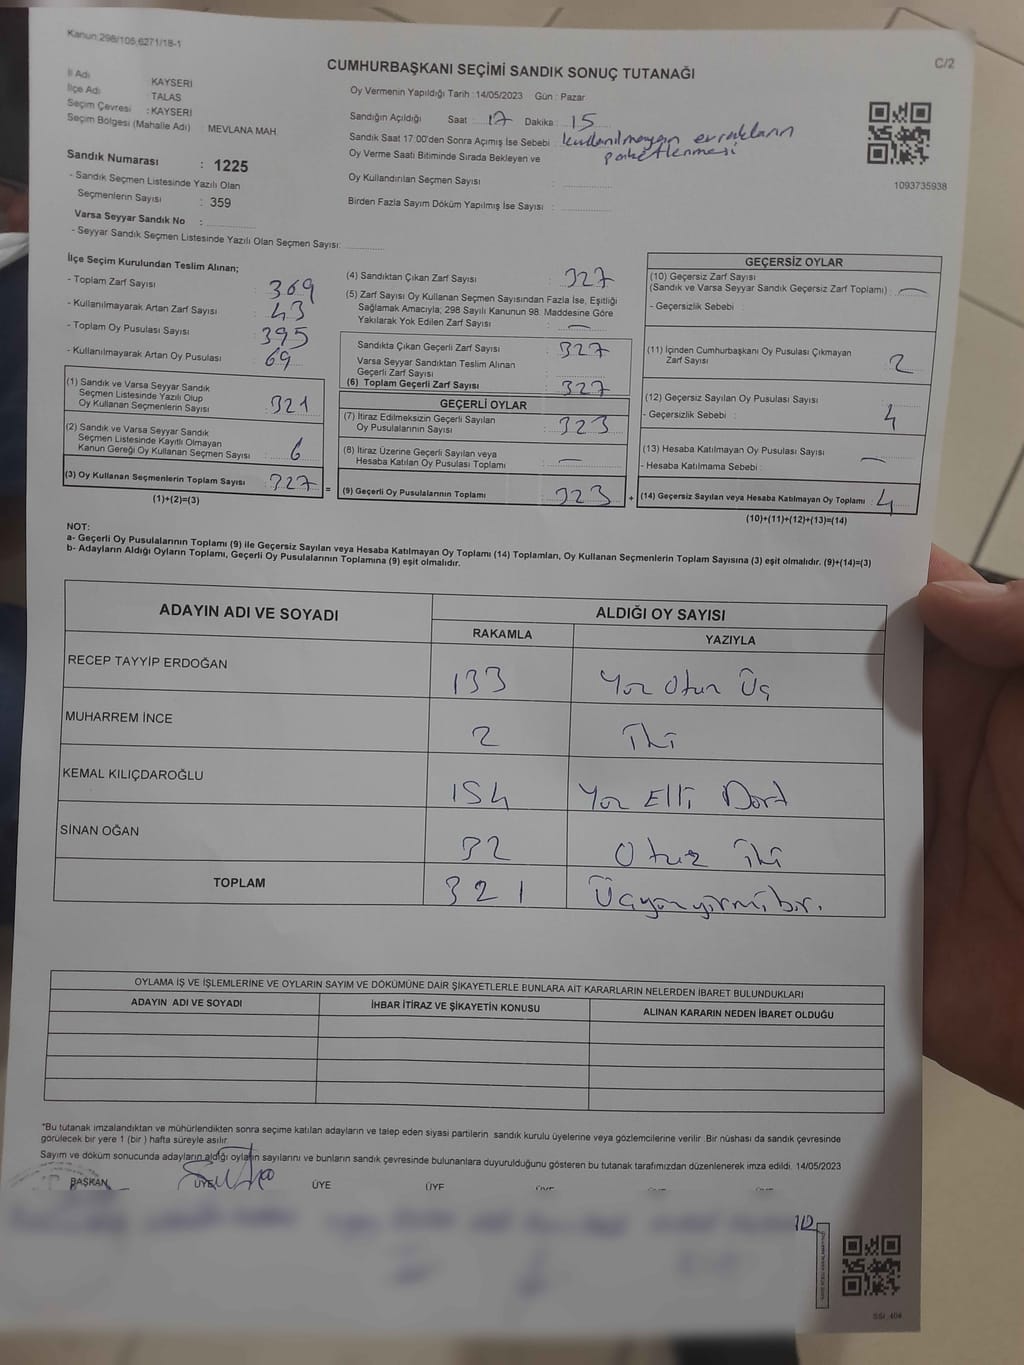 Kanun:298/105,6271/18-1
C/2
CUMHURBAŞKANI SEÇİMİ SANDIK SONUÇ TUTANAĞI
İl Adı KAYSERİ
İlçe Adı : TALAS
Seçim Çevresi : KAYSERİ
Seçim Bölgesi (Mahalle Adı) : MEVLANA MAH.
Oy Vermenin Yapıldığı Tarih : 14/05/2023 Gün : Pazar
Sandığın Açıldığı Saat 17 Dakika : 15
Sandık Saat 17:00'den Sonra Açımış İse Sebebi : kullanılmayan evrakların
paketlenmesi
Oy Verme Saati Bitiminde Sırada Bekleyen ve
Oy Kullandırılan Seçmen Sayısı :
Birden Fazla Sayım Döküm Yapılmış İse Sayısı :
1093735938
Sandık Numarası : 1225
- Sandık Seçmen Listesinde Yazılı Olan
Seçmenlerin Sayısı : 359
Varsa Seyyar Sandık No :
- Seyyar Sandık Seçmen Listesinde Yazılı Olan Seçmen Sayısı:
İlçe Seçim Kurulundan Teslim Alınan;
- Toplam Zarf Sayısı : 369
- Kullanılmayarak Artan Zarf Sayısı : 43
- Toplam Oy Pusulası Sayısı : 395
- Kullanılmayarak Artan Oy Pusulası : 69
(1) Sandık ve Varsa Seyyar Sandık
Seçmen Listesinde Yazılı Olup
Oy Kullanan Seçmenlerin Sayısı : 321
(2) Sandık ve Varsa Seyyar Sandık
Seçmen Listesinde Kayıtlı Olmayan
Kanun Gereği Oy Kullanan Seçmen Sayısı : 6
(3) Oy Kullanan Seçmenlerin Toplam Sayısı : 327
(1)+(2)=(3)
=
(4) Sandıktan Çıkan Zarf Sayısı : 327
(5) Zarf Sayısı Oy Kullanan Seçmen Sayısından Fazla İse, Eşitliği
Sağlamak Amacıyla; 298 Sayılı Kanunun 98. Maddesine Göre
Yakılarak Yok Edilen Zarf Sayısı : —
Sandıkta Çıkan Geçerli Zarf Sayısı : 327
Varsa Seyyar Sandıktan Teslim Alınan
Geçerli Zarf Sayısı :
(6) Toplam Geçerli Zarf Sayısı : 327
GEÇERLİ OYLAR
(7) İtiraz Edilmeksizin Geçerli Sayılan
Oy Pusulalarının Sayısı : 323
(8) İtiraz Üzerine Geçerli Sayılan veya
Hesaba Katılan Oy Pusulası Toplamı : —
(9) Geçerli Oy Pusulalarının Toplamı : 323
+
GEÇERSİZ OYLAR
(10) Geçersiz Zarf Sayısı
(Sandık ve Varsa Seyyar Sandık Geçersiz Zarf Toplamı) : —
- Geçersizlik Sebebi :
(11) İçinden Cumhurbaşkanı Oy Pusulası Çıkmayan
Zarf Sayısı : 2
(12) Geçersiz Sayılan Oy Pusulası Sayısı : 4
- Geçersizlik Sebebi :
(13) Hesaba Katılmayan Oy Pusulası Sayısı : —
- Hesaba Katılmama Sebebi :
(14) Geçersiz Sayılan veya Hesaba Katılmayan Oy Toplamı : 4
(10)+(11)+(12)+(13)=(14)
NOT:
a- Geçerli Oy Pusulalarının Toplamı (9) ile Geçersiz Sayılan veya Hesaba Katılmayan Oy Toplamı (14) Toplamları, Oy Kullanan Seçmenlerin Toplam Sayısına (3) eşit olmalıdır. (9)+(14)=(3)
b- Adayların Aldığı Oyların Toplamı, Geçerli Oy Pusulalarının Toplamına (9) eşit olmalıdır.
ADAYIN ADI VE SOYADI ALDIĞI OY SAYISI
RAKAMLA YAZIYLA
RECEP TAYYİP ERDOĞAN 133 Yüz Otuz Üç
MUHARREM İNCE 2 İki
KEMAL KILIÇDAROĞLU 154 Yüz Elli Dört
SİNAN OĞAN 32 Otuz iki
TOPLAM 321 Üçyüzyirmibir.
OYLAMA İŞ VE İŞLEMLERİNE VE OYLARIN SAYIM VE DÖKÜMÜNE DAİR ŞİKAYETLERLE BUNLARA AİT KARARLARIN NELERDEN İBARET BULUNDUKLARI
ADAYIN ADI VE SOYADI İHBAR İTİRAZ VE ŞİKAYETİN KONUSU ALINAN KARARIN NEDEN İBARET OLDUĞU
*Bu tutanak imzalandıktan ve mühürlendikten sonra seçime katılan adayların ve talep eden siyasi partilerin sandık kurulu üyelerine veya gözlemcilerine verilir. Bir nüshası da sandık çevresinde
görülecek bir yere 1 (bir ) hafta süreyle asılır.
Sayım ve döküm sonucunda adayların aldığı oyların sayılarını ve bunların sandık çevresinde bulunanlara duyurulduğunu gösteren bu tutanak tarafımızdan düzenlenerek imza edildi. 14/05/2023
BAŞKAN ÜYE ÜYE ÜYE